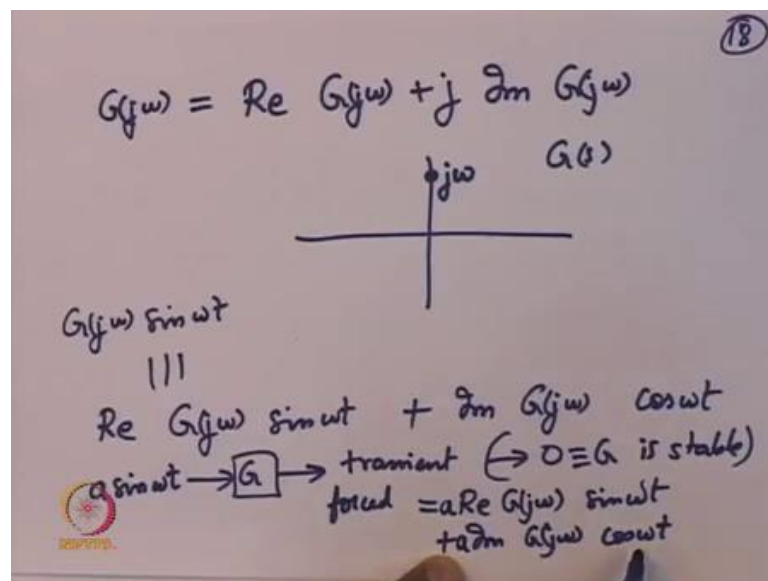 18
G(jω) = Re G(jω) + j Im G(jω)
jω G(s)
G(jω) sin ωt
|||
Re G(jω) sin ωt + Im G(jω) cos ωt
a sin ωt → G → tranient (→ 0 ≡ G is stable)
forced = a Re G(jω) sin ωt
+ a Im G(jω) cos ωt
NPTEL